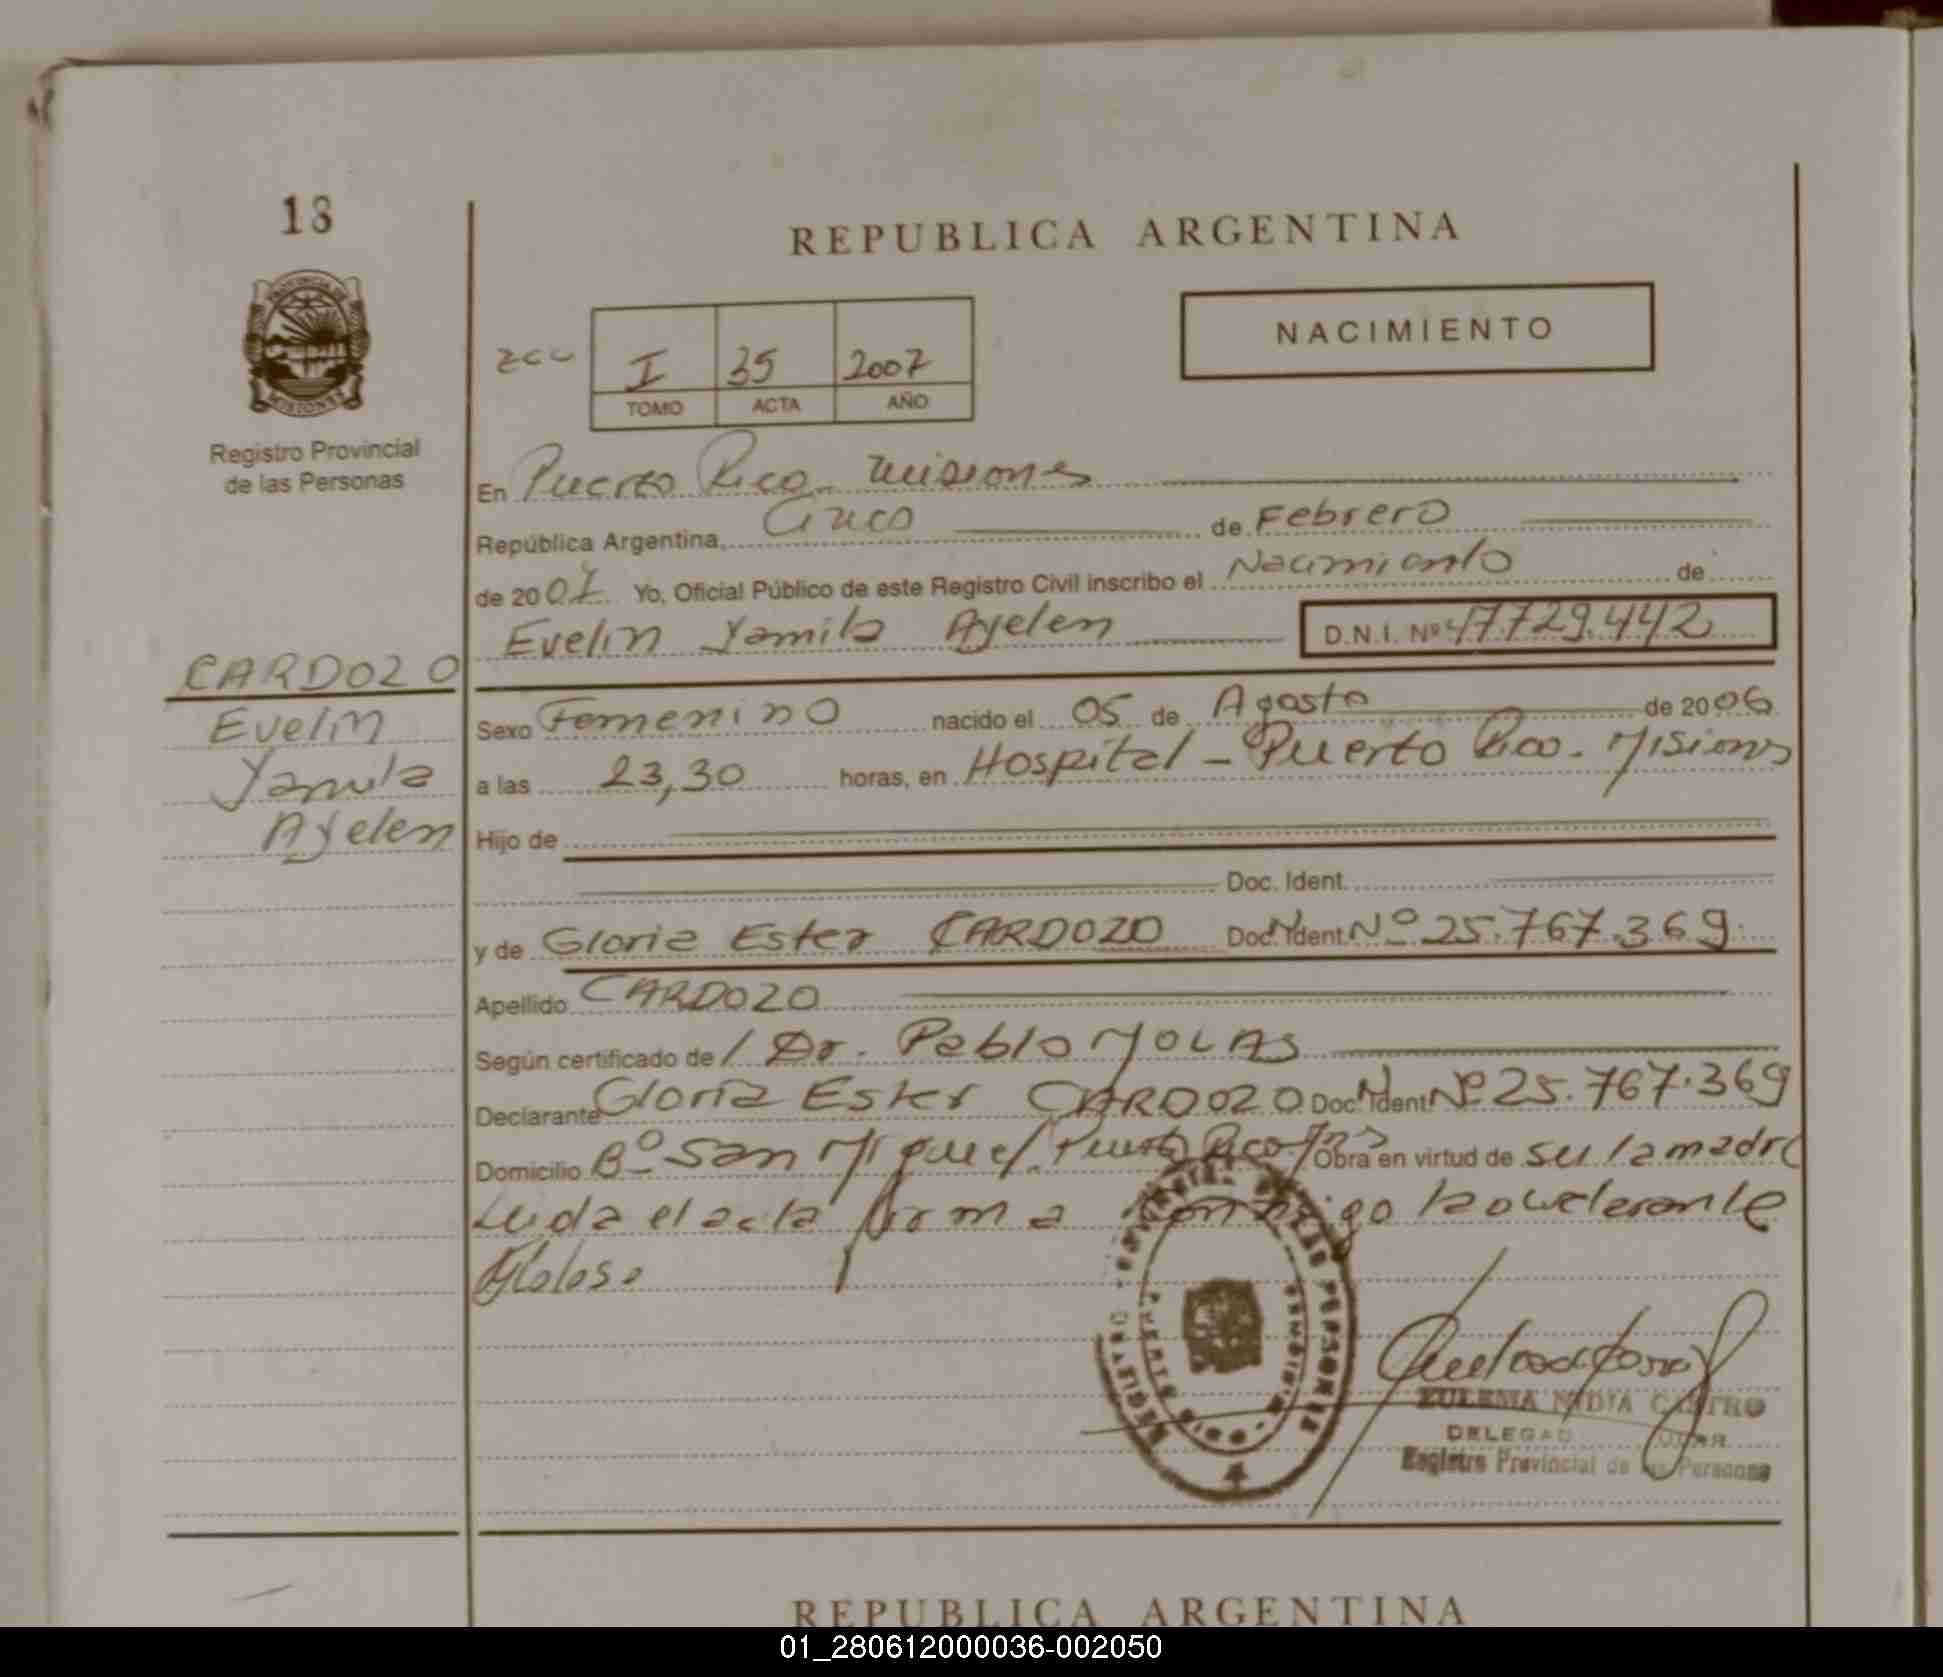 18
REPUBLICA ARGENTINA
PROVINCIA DE
MISIONES
NACIMIENTO
I 35 2007
TOMO ACTA AÑO
Registro Provincial
de las Personas
En Puerto Rico - Misiones
República Argentina, Cinco de Febrero
de 2007 Yo, Oficial Público de este Registro Civil inscribo el Nacimiento de
Evelin Yamila Ayelen D.N.I. Nº 47.729.442
CARDOZO
Evelin
Yamila
Ayelen
Sexo Femenino nacido el 05 de Agosto de 2006
a las 23,30 horas, en Hospital - Puerto Rico - Misiones
Hijo de
Doc. Ident.
y de Gloria Ester CARDOZO Doc. Ident. Nº 25.767.369
Apellido CARDOZO
Según certificado de / Dr. Pablo MOLAS
Declarante Gloria Ester CARDOZO Doc. Ident. Nº 25.767.369
Domicilio Bº San Miguel Puerto Rico Mns Obra en virtud de su la madre
Leida el acta firma conmigo la declarante
ZULEMA NIDIA CASTRO
DELEGAD
Registro Provincial de las Personas
REPUBLICA ARGENTINA
01_280612000036-002050